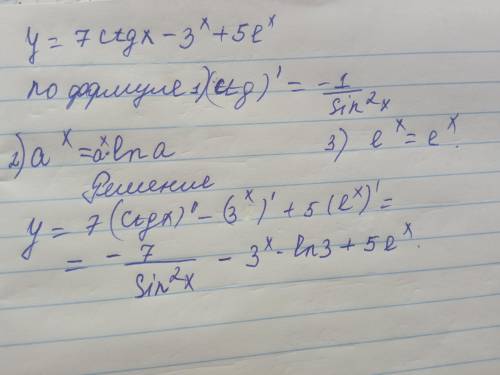 y = 7 ctgx - 3^x + 5e^x
по формуле 1) (ctg)' = -1/Sin²x
2) a^x = a^x·ln a   3) e^x = e^x.
Решение
y = 7 (ctgx)' - (3^x)' + 5 (e^x)' =
= -7/Sin²x - 3^x·ln3 + 5e^x.